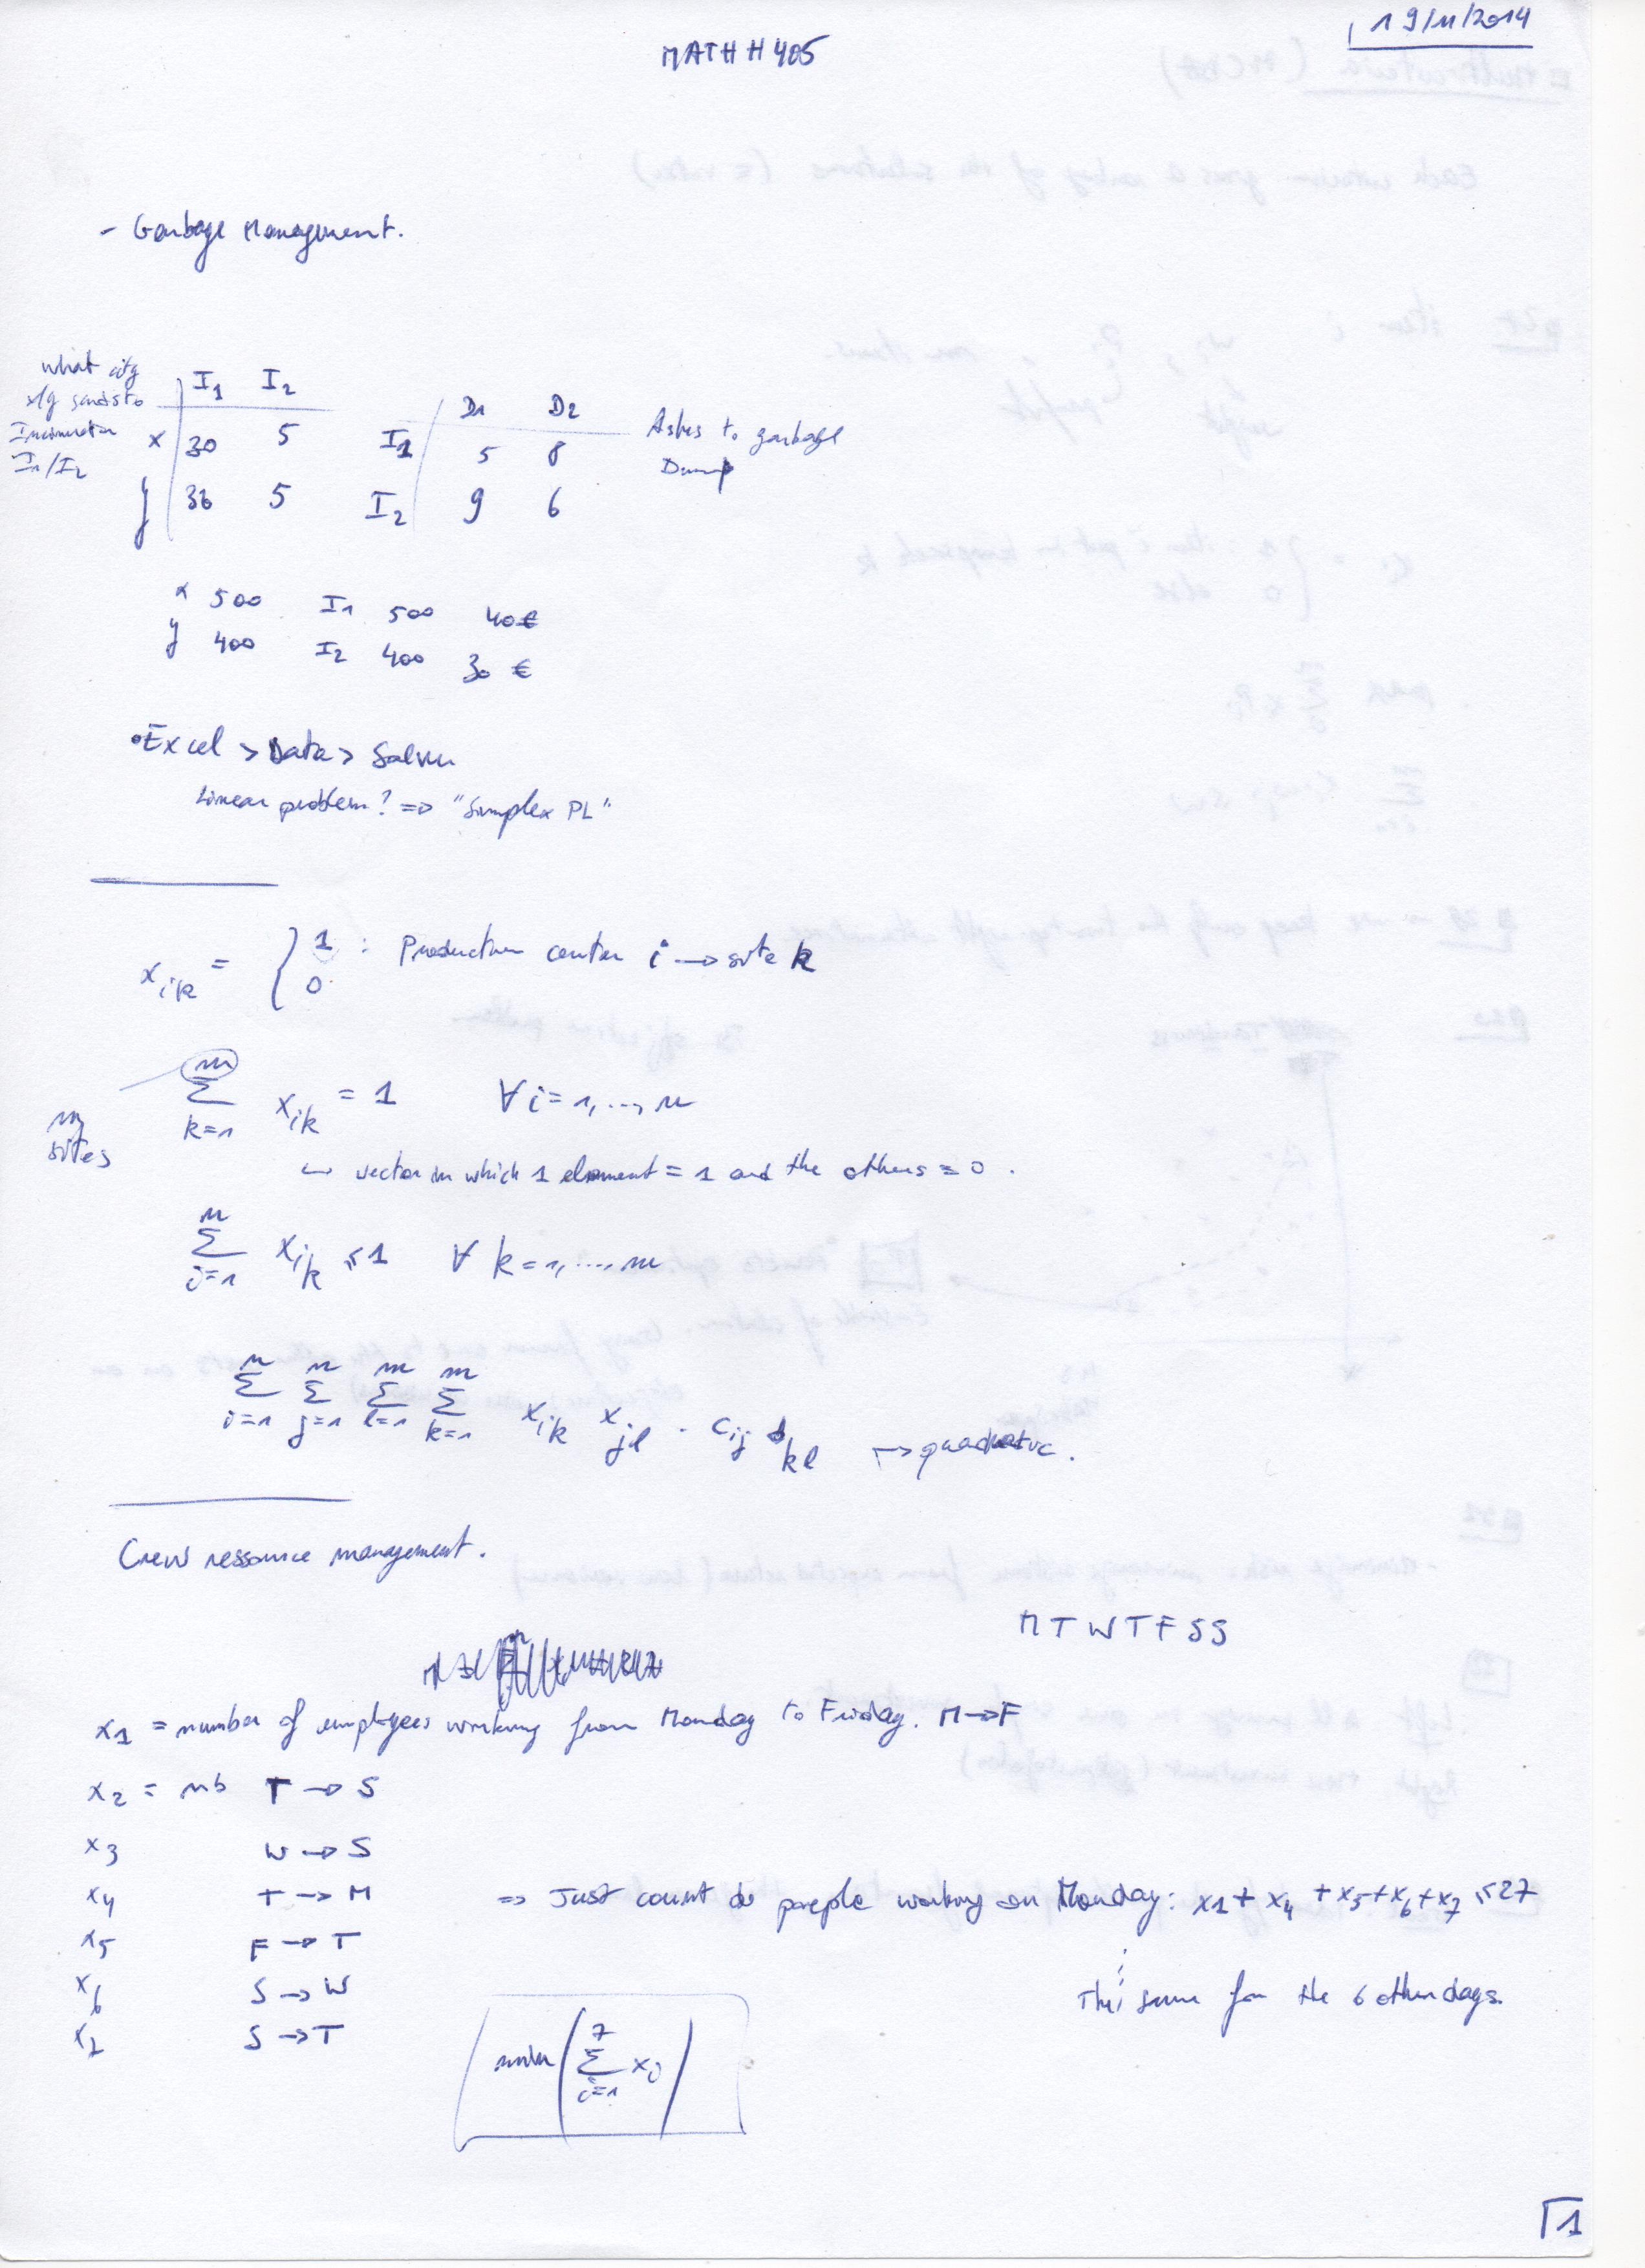 19/11/2014
MATH H405
- Garbage Management.
what city
x/y sends to
Incinerator
I1/I2
I1 I2
x 30 5
y 36 5
D1 D2
I1 5 8
I2 9 6
Ashes to garbage
Dump
x 500 I1 500 40€
y 400 I2 400 30 €
• Excel > Data > Solver
Linear problem? => "Simplex PL"
x_ik = { 1 : Production center i → site k
0
m
sites
m Σ k=1 x_ik = 1 ∀ i = 1, ..., n
↪ vector in which 1 element = 1 and the others = 0 .
n Σ i=1 x_ik ≤ 1 ∀ k = 1, ..., m
n Σ i=1 n Σ j=1 m Σ l=1 m Σ k=1 x_ik x_jl . c_ij d_kl → quadratic .
Crew ressource management .
M T W T F S S
x1 = number of employees working from Monday to Friday. M → F
x2 = nb T → S
x3 W → S
x4 T → M
=> Just count do people working on Monday: x1 + x4 + x5 + x6 + x7 ≤ 27
x5 F → T
x6 S → W
The same for the 6 other days.
S → T
( 7 Σ i=1 xi )
1